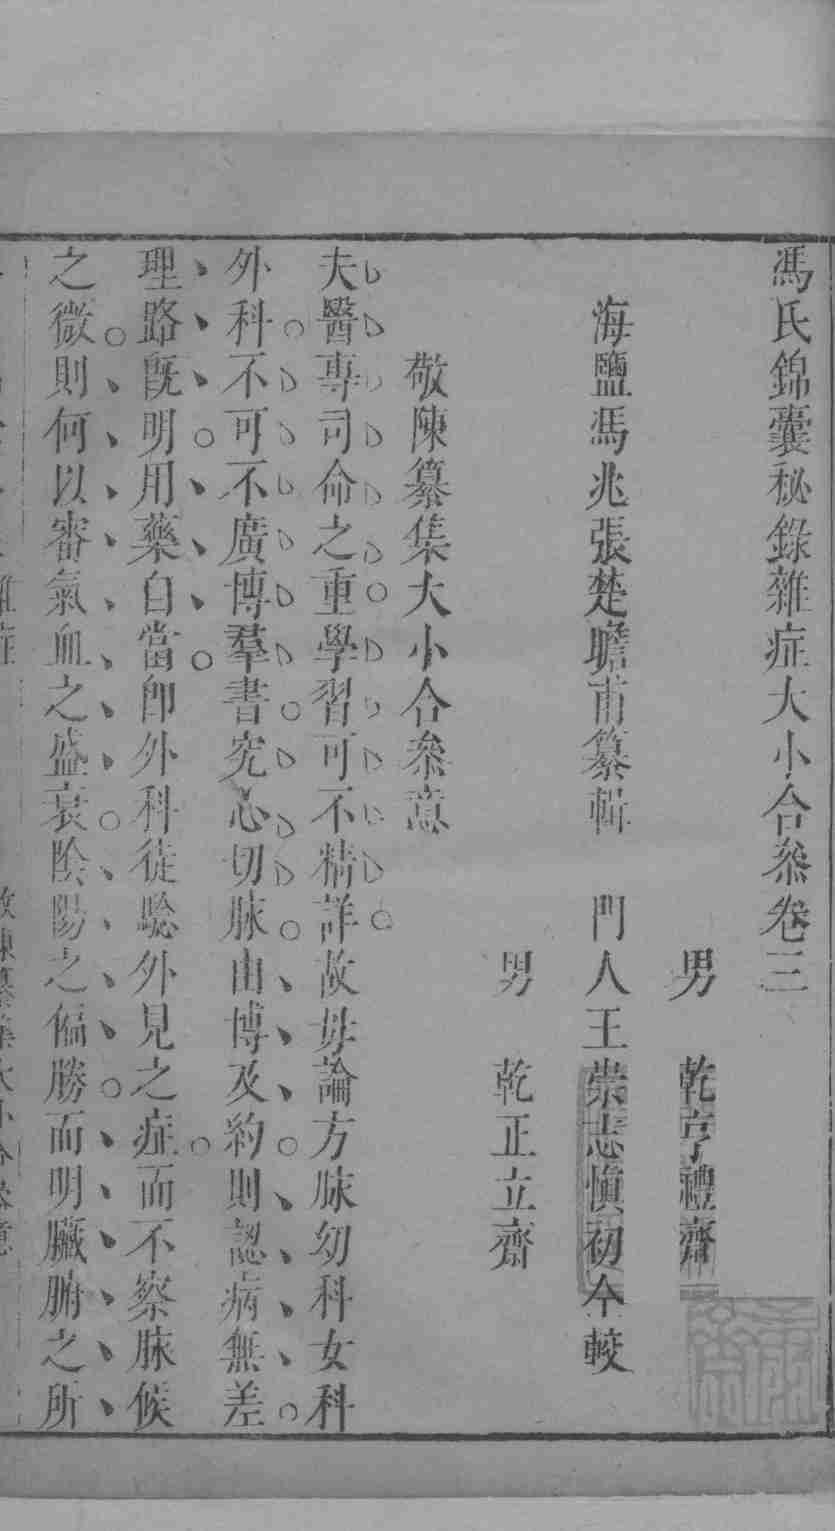 馮氏錦囊秘錄雜症大小合叅卷三
男　乾亨禮齋
海鹽馮兆張楚瞻甫纂輯　門人王崇志愼初仝較
男　乾正立齋
敬陳纂集大小合叅意
夫醫專司命之重學習可不精詳故毋論方脉幼科女科
外科不可不廣博羣書究心切脉由博及約則認病無差
理路旣明用藥自當卽外科徒驗外見之症而不察脉候
之微則何以審氣血之盛衰陰陽之偏勝而明臟腑之所
雜症　敬陳纂集大小合叅意